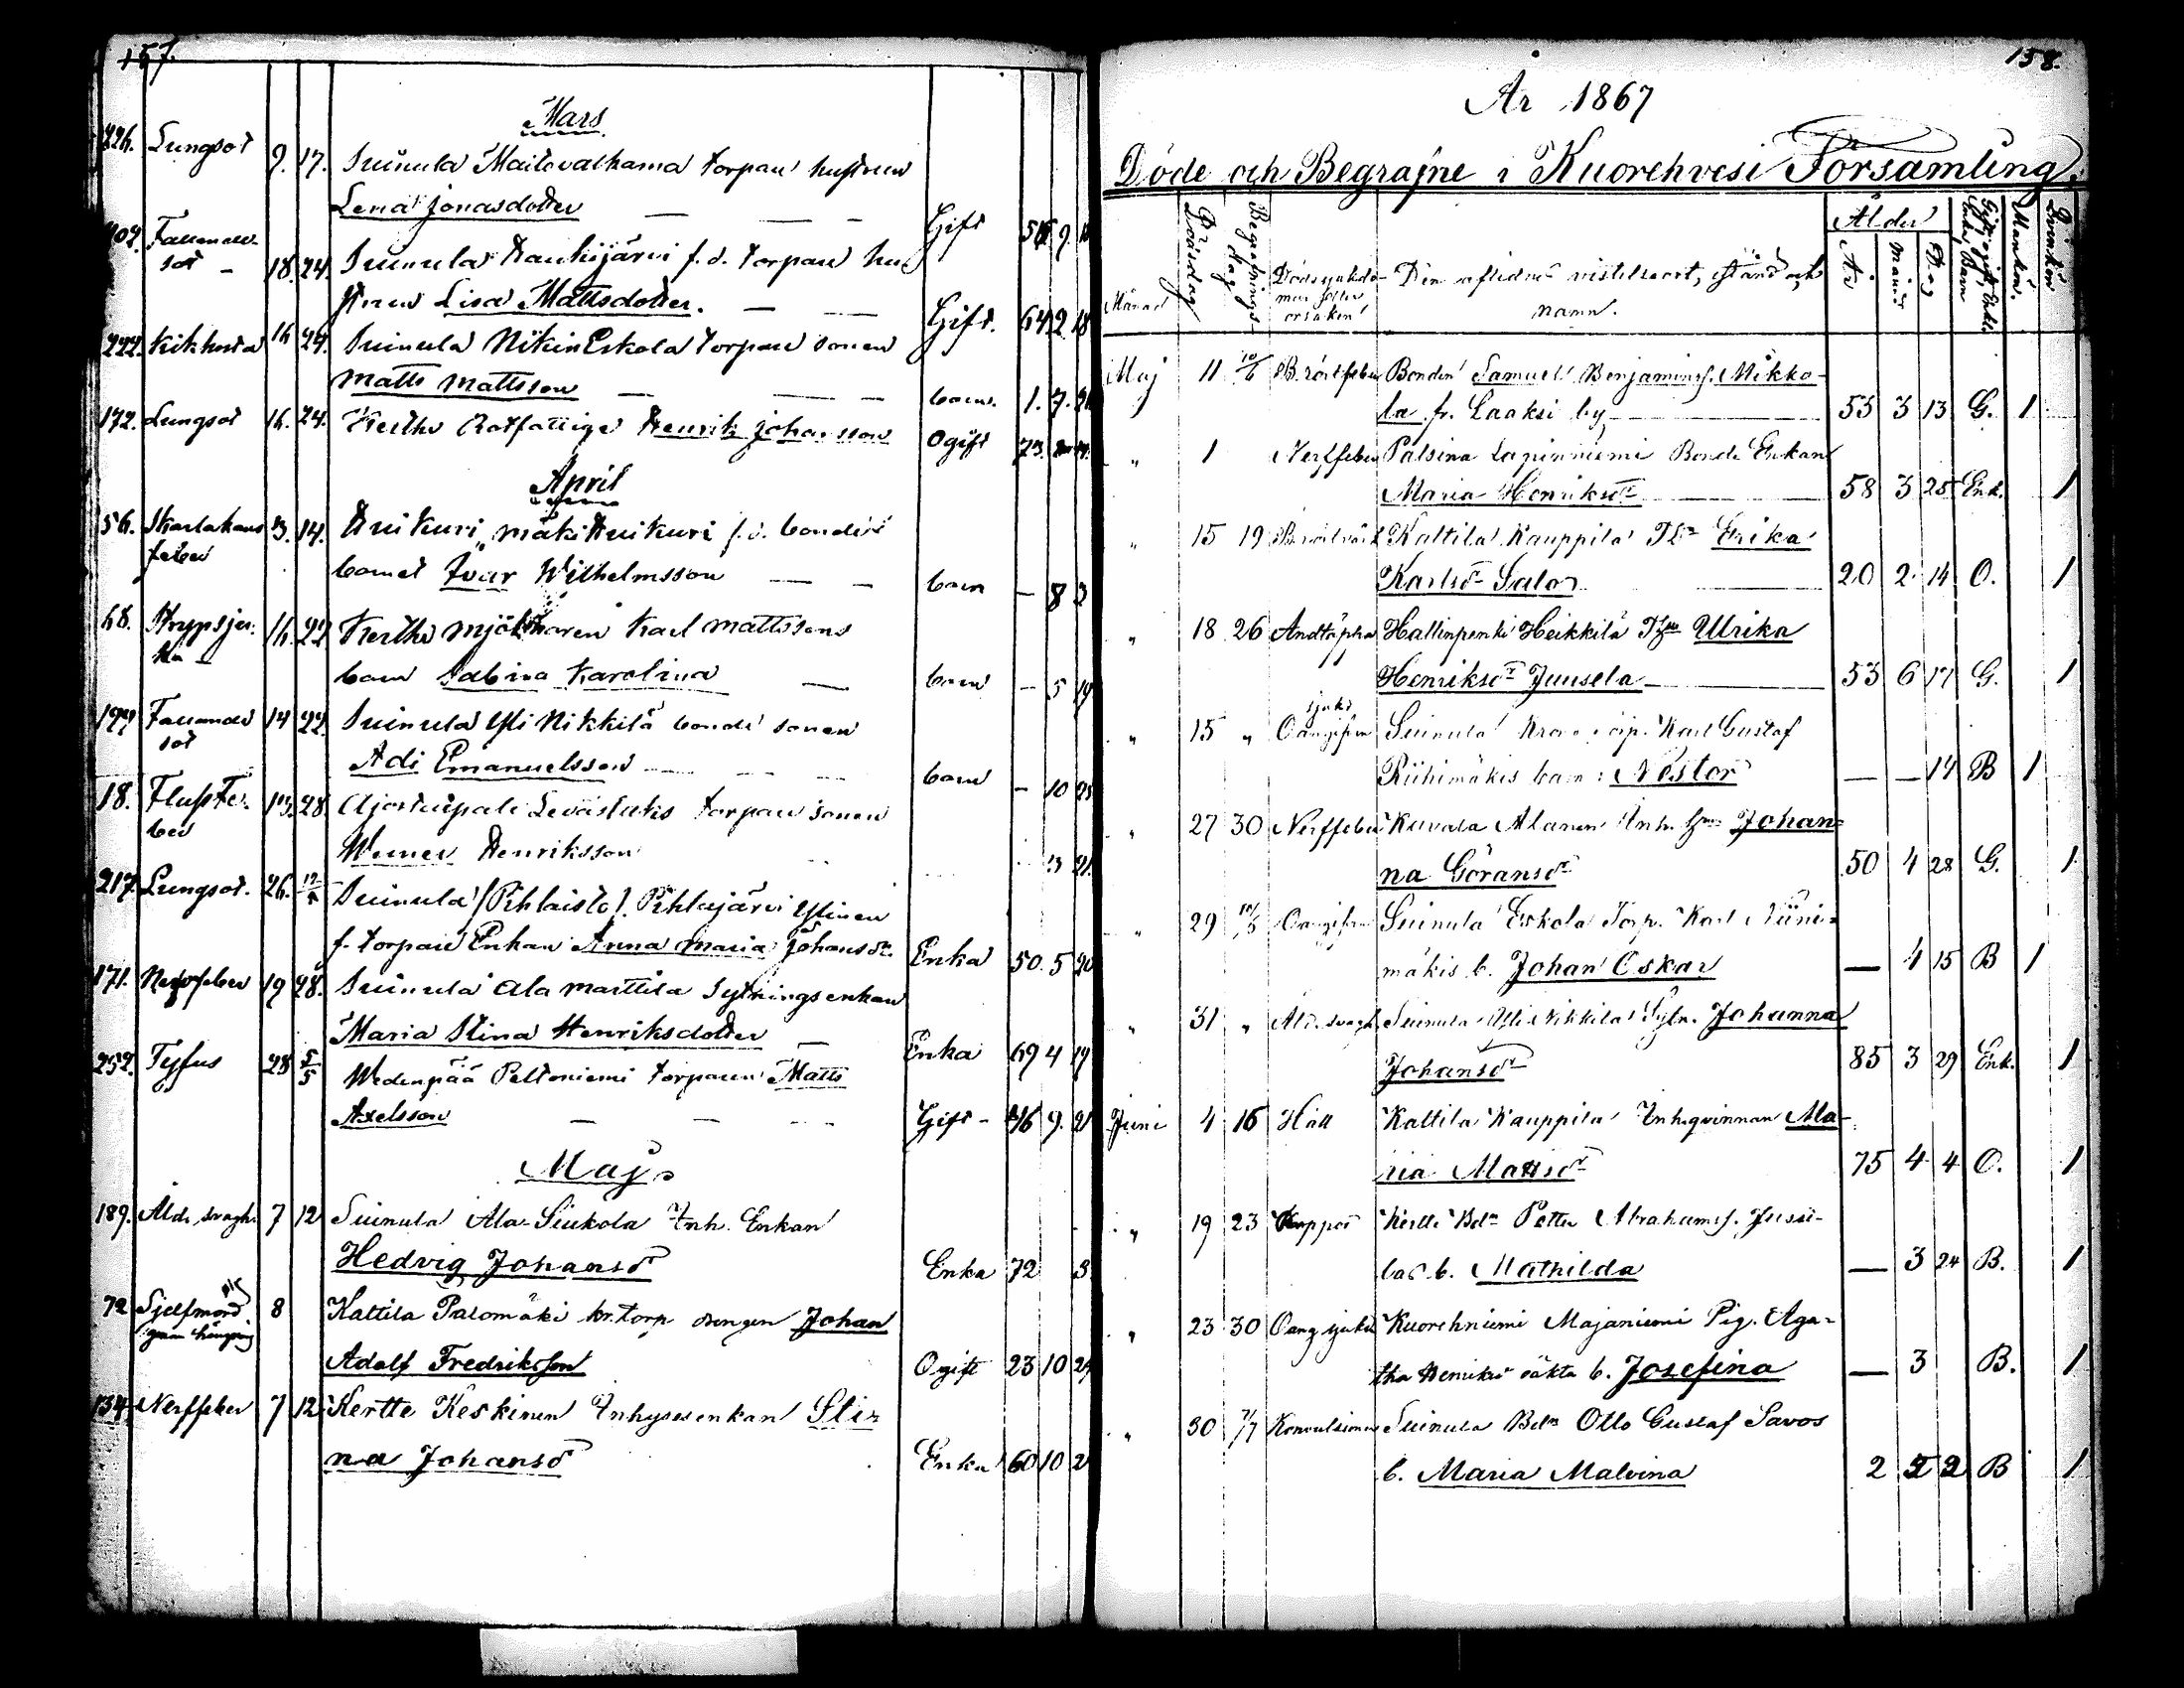 157.
Mars
226. Lungsot 9. 17. Suinula Maitovalkama torpare hustrun
Lena Jonasdotter — — — Gift 9.
202. Fallande-
sot — 18. 24. Suinula Haukijärvi f. d. torpare hu-
strun Lisa Mattsdotter. — — Gift. 64 2 18
222. Kikhosta 16 24. Suinula Nikin Eskola torpare sonen
Matts Mattsson — — — barn. 1. 7.
172. Lungsot 16. 24. Kertte Rotfattige Henrik Johansson Ogift 73.
April
56. Skarlakans
feber 3. 14. Huikuri, mäki Huikuri f. d. bonde
barnet Ivar Wilhelmsson — — barn — 8 3
68. Strypsju-
ka — 16. 22 Kertte mjölnaren Karl Mattssons
barn Sabina Karolina — barn — 5 19
197 Fallande
sot 14 22. Suinula Yli Nikkilä bonde sonen
Adi Emanuelsson — — — barn — 10 25
18. Flussfe-
ber 13. 28. Leväslaks torpare sonen
Werner Henriksson 3 21.
217. Lungsot. 26. Suinula (Pihlaisto). Pihlajärvi Ylinen
f. torpare Enkan Anna Maria Johansdr. Enka 50. 5 20
171. Nervfeber 19 28. Suinula Ala Marttila Sytningsenkan
Maria Stina Henriksdotter — Enka 69 4 19
252. Tyfus 28 5/5 Wedenpää Peltoniemi torparen Matts
Axelsson — — — Gift - 46 9. 21
Maj
189. Åld. svagh. 7 12 Suinula Ala-Siukola Inh. Enkan
Hedvig Johansdr Enka 72 3.
72 Sjelfmord
genom hängning 8 Kattila Palomäki kr. torp. drengen Johan
Adolf Fredriksson Ogift 23 10 24
134. Nerffeber 7 12 Kertte Keskinen Inhysesenkan Sti-
na Johansdr Enka 60 10 2
158.
År 1867
Döde och Begrafne i Kuorehvesi Församling.
Månad
Dödsdag
Begrafnings-
dag
Dödssjukdo-
men eller
orsaken
Den aflidnes vistelseort, stånd och
namn.
Ålder
År
Månad
Dag
Mankön.
Qvinkön
Maj 11 10/6 Bröstfeber Bonden Samuel Benjaminss. Mikko-
la fr. Laaksi by — 53 3 13 G. 1
„ 1 Nerffeber Palsina Lapinniemi Bonde Enkan
Maria Henriksdr — 58 3 25 Enk. 1
„ 15 19 Kattila Kauppila Erika
Karlsdr Salor — 20 2 14 O. 1
„ 18 26 Andtäppa Hallinpenki Heikkilä Ulrika
Henriksdr Juusela — 53 6 17 G. 1
„ 15 „ Oangifven
sjukd. Suinula Krono torp. Karl Gustaf
Riihimäkis barn: Nestor — — 14 B 1
„ 27 30 Nerffeber Kuvala Alanen Inh. hm Johan-
na Göransdr 50 4 28 G. 1
„ 29 Oangifven Suinula Eskola Torp. Karl Niini-
mäkis b. Johan Oskar — 4 15 B 1
„ 31 „ Åld. svagh. Suinula Yli Nikkilä Sytn. Johanna
Johansdr 85 3 29 Enk. 1
Juni 4 16 Håll Kattila Kauppila Inh.qvinnan Ma-
ria Mattsdr 75 4 4 O. 1
„ 19 23 Koppor Kertte Petter Abrahamss. Jussi-
las b. Mathilda — 3 24 B. 1
„ 23 30 Oang. sjukd. Kuorehniemi Majaniemi Pig. Aga-
tha Henriks oäkta b. Josefina — 3 B. 1
„ 30 7/7 Konvulsioner Suinula Otto Gustaf Savos
b. Maria Malvina 2 2 2 B 1